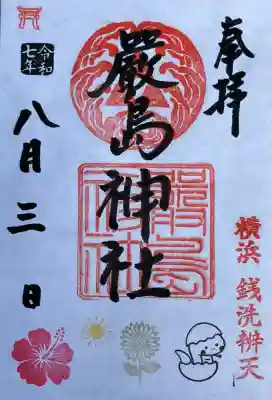 奉拝
嚴島神社
嚴島神社
横浜 銭洗辨天
令和七年
八月三日